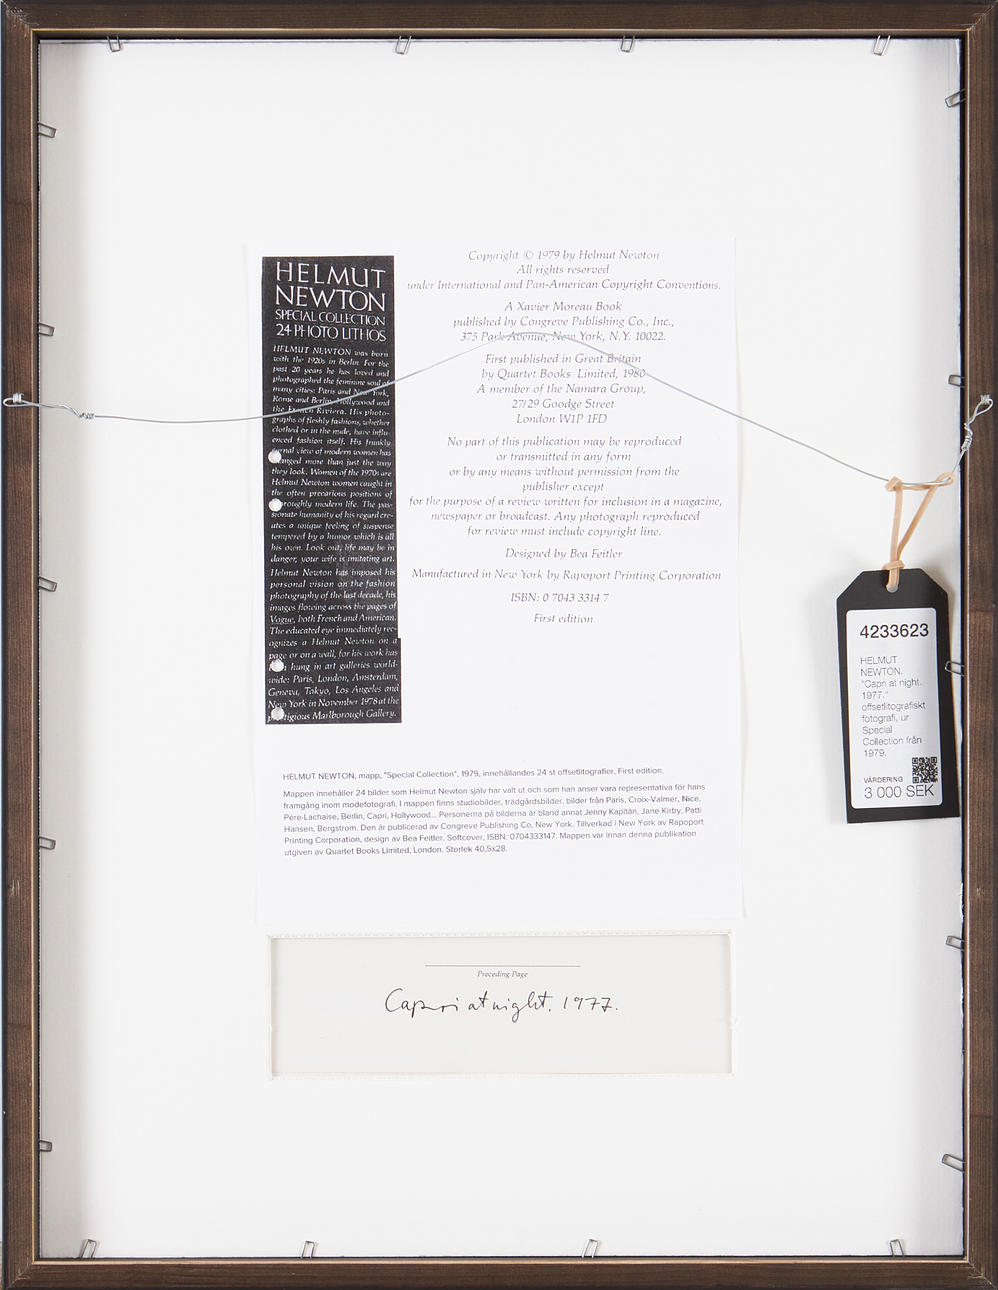 HELMUT
NEWTON
SPECIAL COLLECTION
24 PHOTO LITHOS
HELMUT NEWTON was born
with the 1920s in Berlin. For the
past 20 years he has loved and
photographed the feminine soul of
many cities: Paris and New York,
Rome and Berlin, Hollywood and
the French Riviera. His photo-
graphs of fleshly fashions, whether
clothed or in the nude, have influ-
enced fashion itself. His frankly
view of modern women has
more than just the way
they look. Women of the 1970s are
Helmut Newton women caught in
the often precarious positions of
modern life. The pas-
sionate humanity of his regard cre-
ates a unique feeling of suspense
tempered by a humor which is all
his own. Look out, life may be in
danger, your wife is imitating art.
Helmut Newton has imposed his
personal vision on the fashion
photography of the last decade, his
images flowing across the pages of
Vogue, both French and American.
The educated eye immediately rec-
ognizes a Helmut Newton on a
page or on a wall, for his work has
hung in art galleries world-
wide: Paris, London, Amsterdam,
Geneva, Tokyo, Los Angeles and
New York in November 1978 at the
Marlborough Gallery.
Copyright © 1979 by Helmut Newton
All rights reserved
under International and Pan-American Copyright Conventions.
A Xavier Moreau Book
published by Congreve Publishing Co., Inc.,
375 Park Avenue, New York, N.Y. 10022.
First published in Great Britain
by Quartet Books Limited, 1980
A member of the Namara Group,
27/29 Goodge Street
London W1P 1FD
No part of this publication may be reproduced
or transmitted in any form
or by any means without permission from the
publisher except
for the purpose of a review written for inclusion in a magazine,
newspaper or broadcast. Any photograph reproduced
for review must include copyright line.
Designed by Bea Feitler
Manufactured in New York by Rapoport Printing Corporation
ISBN: 0 7043 3314 7
First edition
4233623
HELMUT
NEWTON.
"Capri at night.
1977."
offsetlitografiskt
fotografi, ur
Special
Collection från
1979.
VÄRDERING
3 000 SEK
HELMUT NEWTON, mapp, "Special Collection", 1979, innehållandes 24 st offsetlitografier, First edition.
Mappen innehåller 24 bilder som Helmut Newton själv har valt ut och som han anser vara representativa för hans
framgång inom modefotografi. I mappen finns studiobilder, trädgårdsbilder, bilder från Paris, Croix-Valmer, Nice,
Père-Lachaise, Berlin, Capri, Hollywood... Personerna på bilderna är bland annat Jenny Kapitän, Jane Kirby, Patti
Hansen, Bergstrom. Den är publicerad av Congreve Publishing Co, New York. Tillverkad i New York av Rapoport
Printing Corporation, design av Bea Feitler. Softcover, ISBN: 0704333147. Mappen var innan denna publikation
utgiven av Quartet Books Limited, London. Storlek 40,5x28.
Preceding Page
Capri at night, 1977.